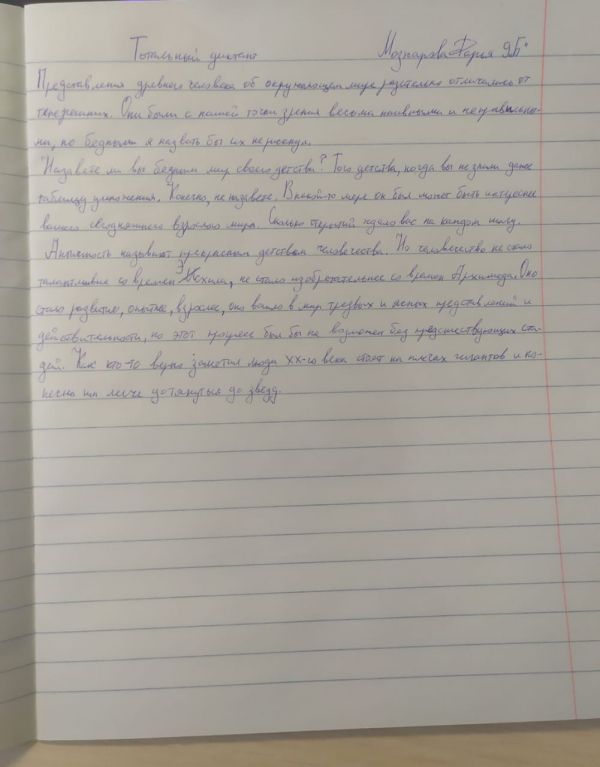 Тотальный диктант Мознарова Дария 9"Б"
Представления древнего человека об окружающем мире разительно отличались от
теперешних. Они были с нашей точки зрения весьма наивными и неправильны-
ми, но бедными я назвать бы их не рискнул.
"Назавёте ли вы бедным мир своего детства? Того детства, когда вы не знали даже
таблицу умножения. "Конечно, не назавёте. В какой-то мере он был может быть интереснее
вашего сегодняшнего взрослого мира. Сколько открытий ждало вас на каждом шагу.
Античность называют прекрасным детством человечества. Но человечество не стало
талантливее со времён Эсхила, не стало изобретательнее со времён Архимеда. Оно
стало развитие, опытнее, взрослее, оно вошло в мир трезвых и ясных представлений и
действительности, но этот прогресс был бы не возможен без предшествующих ста-
дей. Как кто-то верно заметил люди XX-го века стоят на плечах гигантов и ко-
нечно им легче дотянуться до звёзд.